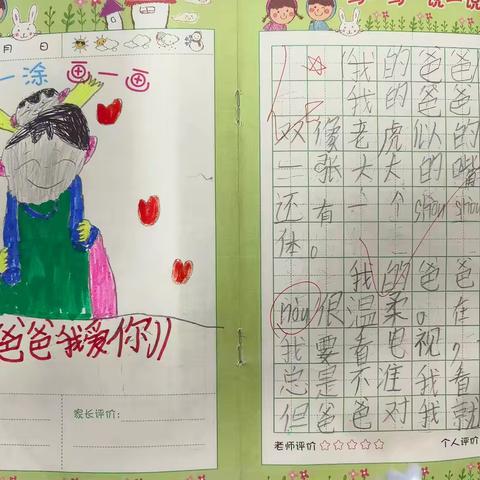 月 日
一涂 画一画
爸爸我爱你
家长评价:
《我的爸爸
我的爸爸
双像老虎似的
一张大大的嘴
还有一个shòu shòu
体。
我的爸爸
nòu很温柔。在
我要看电视,
总是不准我看
但爸爸对我就
老师评价☆☆☆☆☆
个人评价